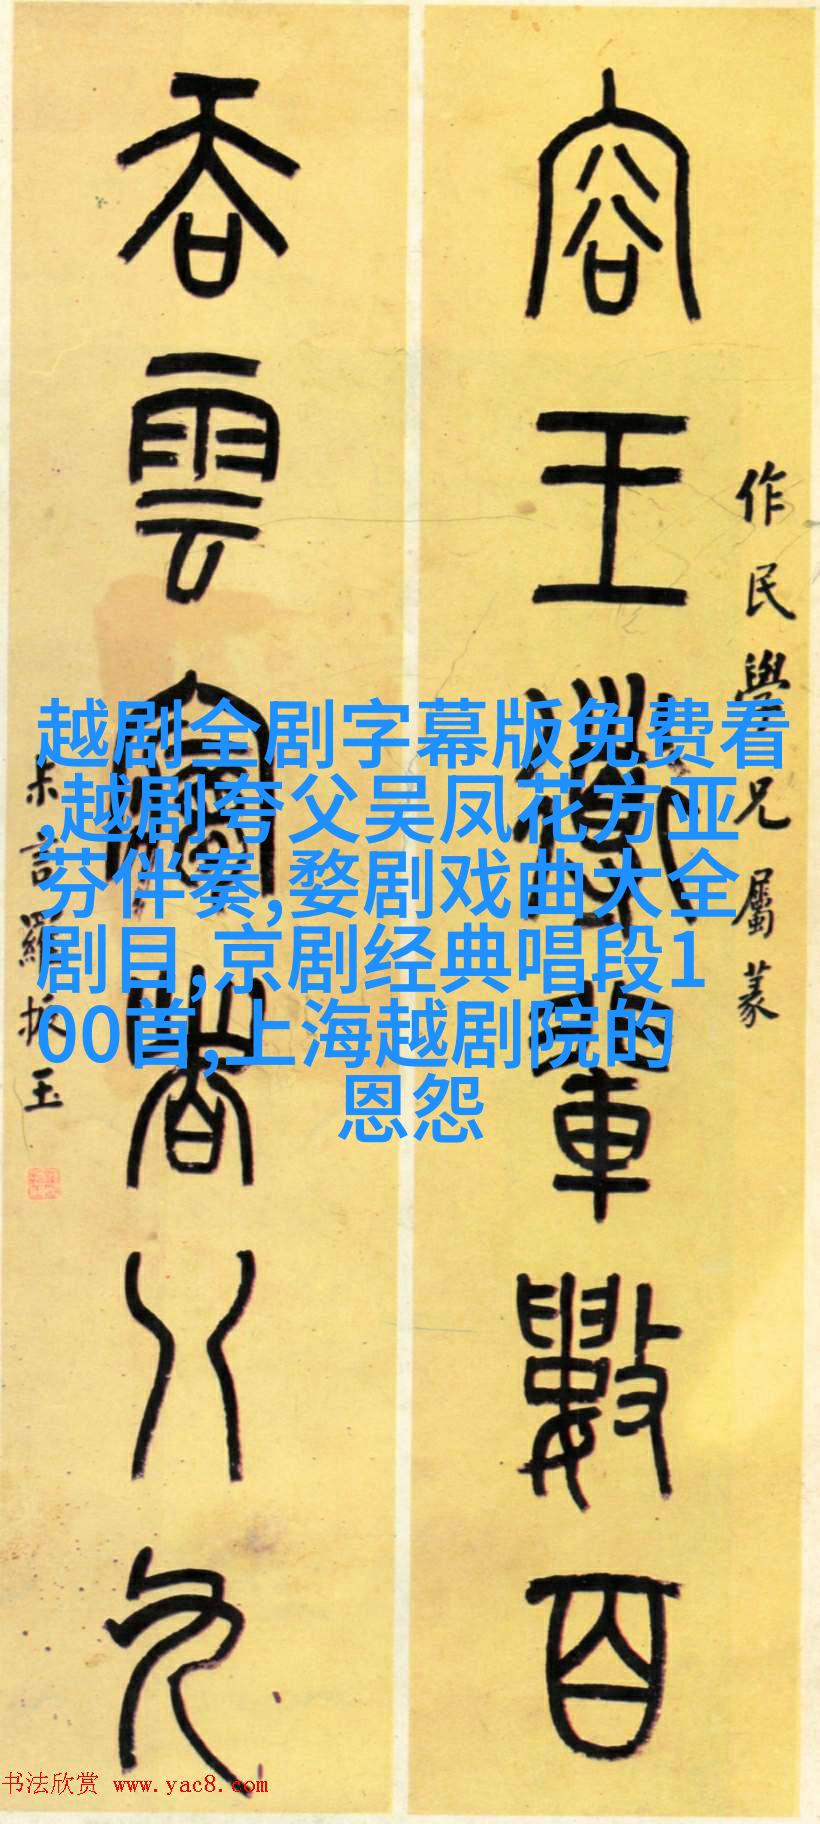 容王導輩數百
作民學兄屬篆
吞雲夢者八九
叔言羅振玉
越剧全剧字幕版免费看
,越剧夸父吴凤花方亚
芬伴奏,婺剧戏曲大全
剧目,京剧经典唱段1
00首,上海越剧院的
恩怨
书法欣赏 www.yac8.com